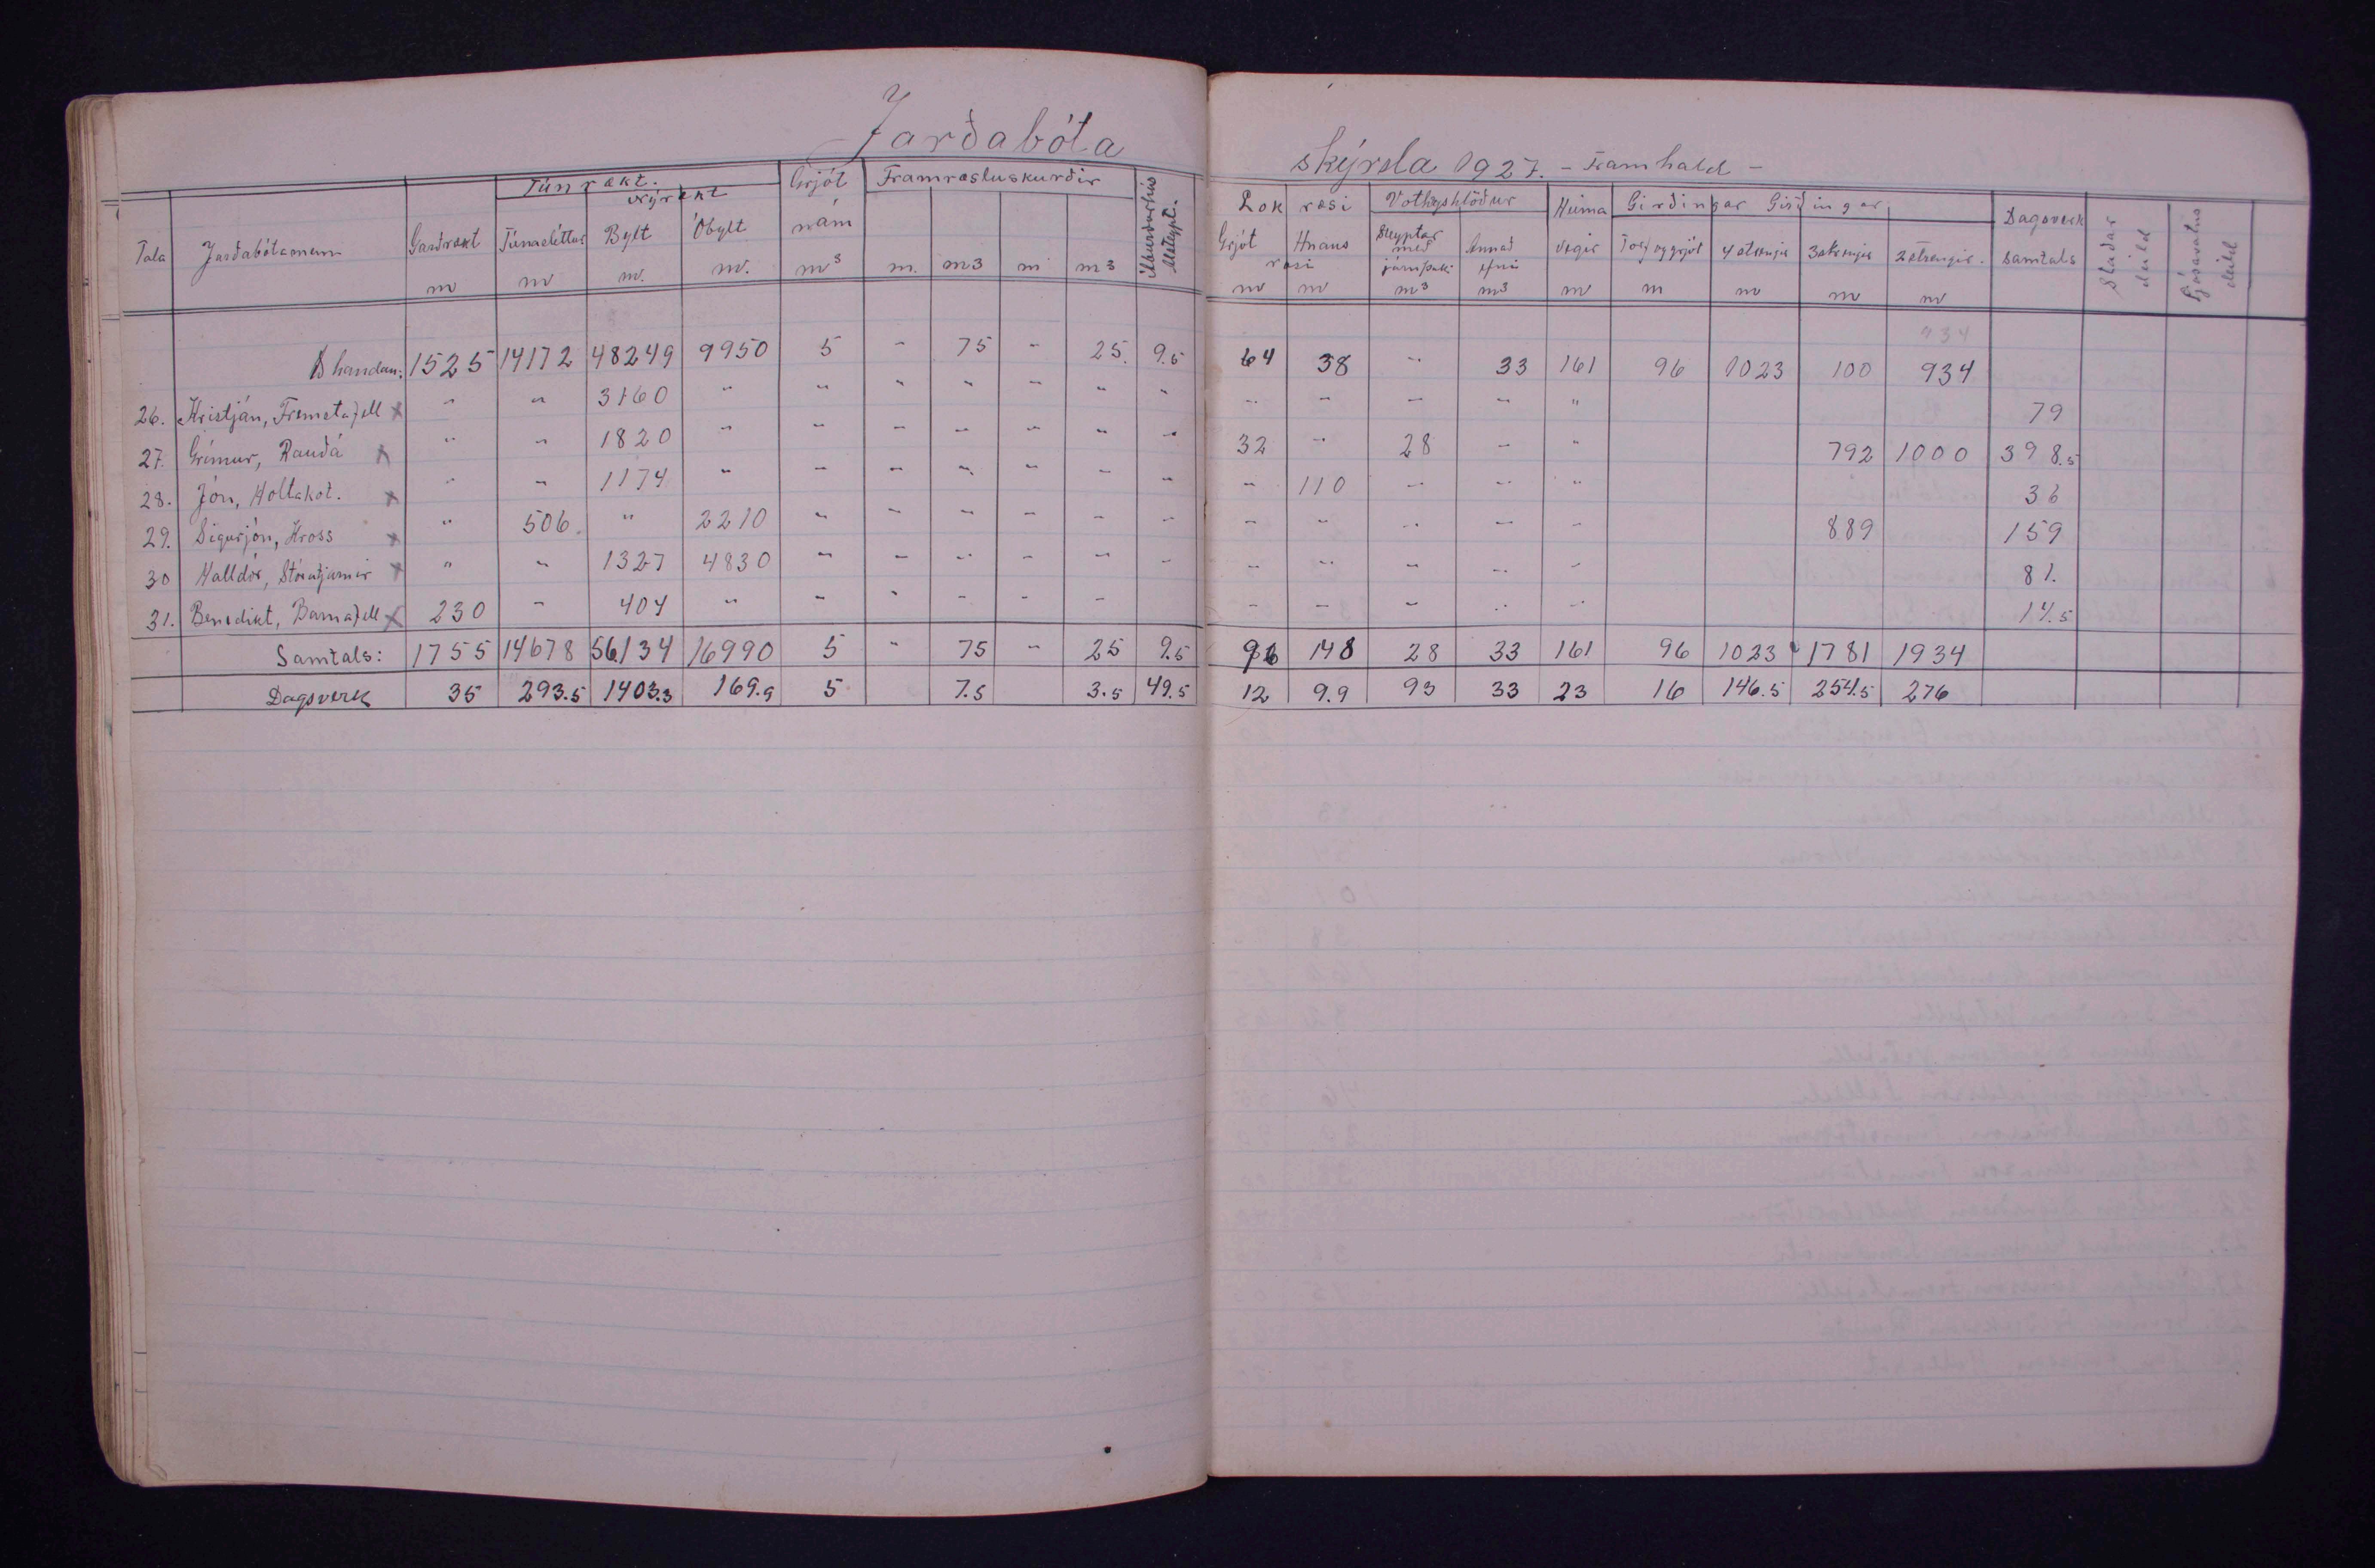 Jarðabóta skýrsla 1927. - Framhald -
Túnrækt. Grjót Framræsluskurðir Áburðarhús Lok ræsi Votheyshlöður Heima Girðingar Girðingar Dagsverk Slaðar deild Ljósavatns deild
Nýrækt
Tala Jarðabótamenn Garðrækt Túnasléttur Bylt Óbylt nám Grjót Hnaus Steyptar með járnþaki Annað efni vegir Torf og grjót 4 strengir 3 strengir 2 strengir. samtals
ræsi
m m m. m. m3 m. m3 m m3 m m m3 m3 m m m m m
934
Ð handan: 1525 14172 48249 9950 5 - 75 - 25. 9.5 64 38 - 33 161 96 1023 100 934
26. Kristján, Fremstafell x " " 3160 " " " " " " " " - - - " 79
27. Grímur, Rauðá x " " 1820 " " - - - " - 32 - 28 - " 792 1000 398.5
28. Jón, Holtakot. x " - 1174 " - - " - - - - 110 - - " 36
29. Sigurjón, Kross x " 506. " 2210 " - - - - - - " - - - 889 159
30 Halldór, Stóratjarnir x " " 1327 4830 " - - - - - - - - - - 81.
31. Benedikt, Barnafell x 230 - 404 " - - - - - - - - - - 14.5
Samtals: 1755 14678 56134 16990 5 - 75 - 25 9.5 96 148 28 33 161 96 1023 1781 1934
Dagsverk 35 293.5 1403.3 169.9 5 7.5 3.5 49.5 12 9.9 93 33 23 16 146.5 254.5 276